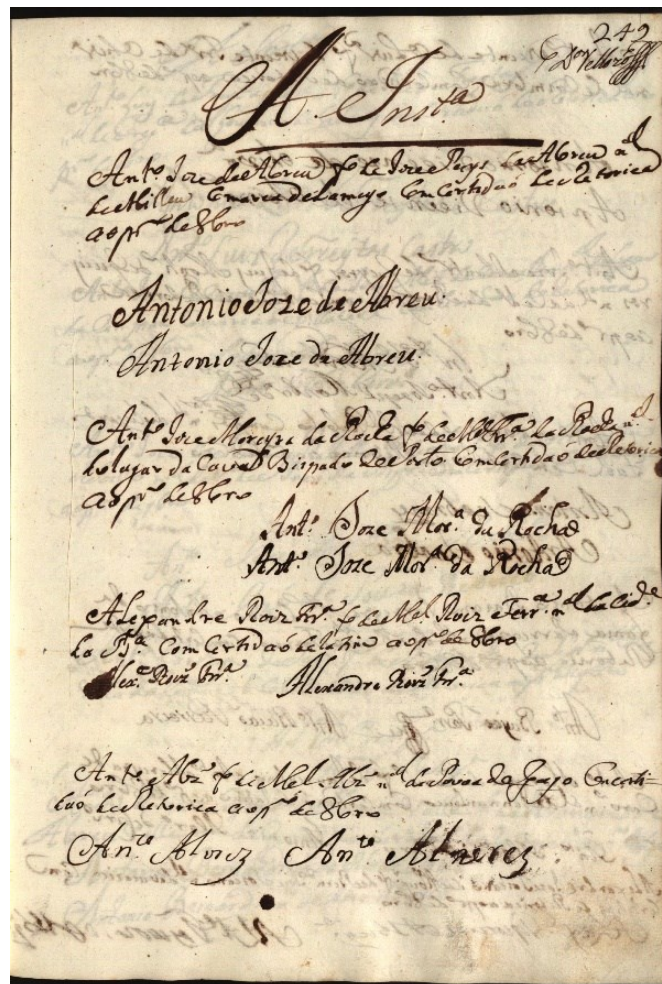 249
A. Inst.ª
Ant.º Joze de Abreu f.º de Joze Paes de Abreu n.al
de Comarca de Lamego Com Certidaõ de Retorica
ao pr.º de 8bro
Antonio Joze de Abreu.
Antonio Joze de Abreu.
Ant.º Joze Moreyra da Rocha f.º de M.el Frr.ª da Rocha n.al
do lugar da Bispado do Porto Com Certidaõ de Retorica
ao pr.º de 8bro
Ant.º Joze Mor.ª da Rocha
Ant.º Joze Mor.ª da Rocha
Alexandre Roiz Frr.ª f.º de M.el Roiz Ferr.ª n.al da Cid.e
da B.ª Com Certidaõ de Latim ao pr.º de 8bro
Alex.e Roiz Frr.ª Alexandre Roiz Frr.ª
Ant.º Alz f.º de M.el Alz n.al da Povoa de Com certi-
daõ de Retorica ao pr.º de 8bro
An.to Alvrez An.to Alverez